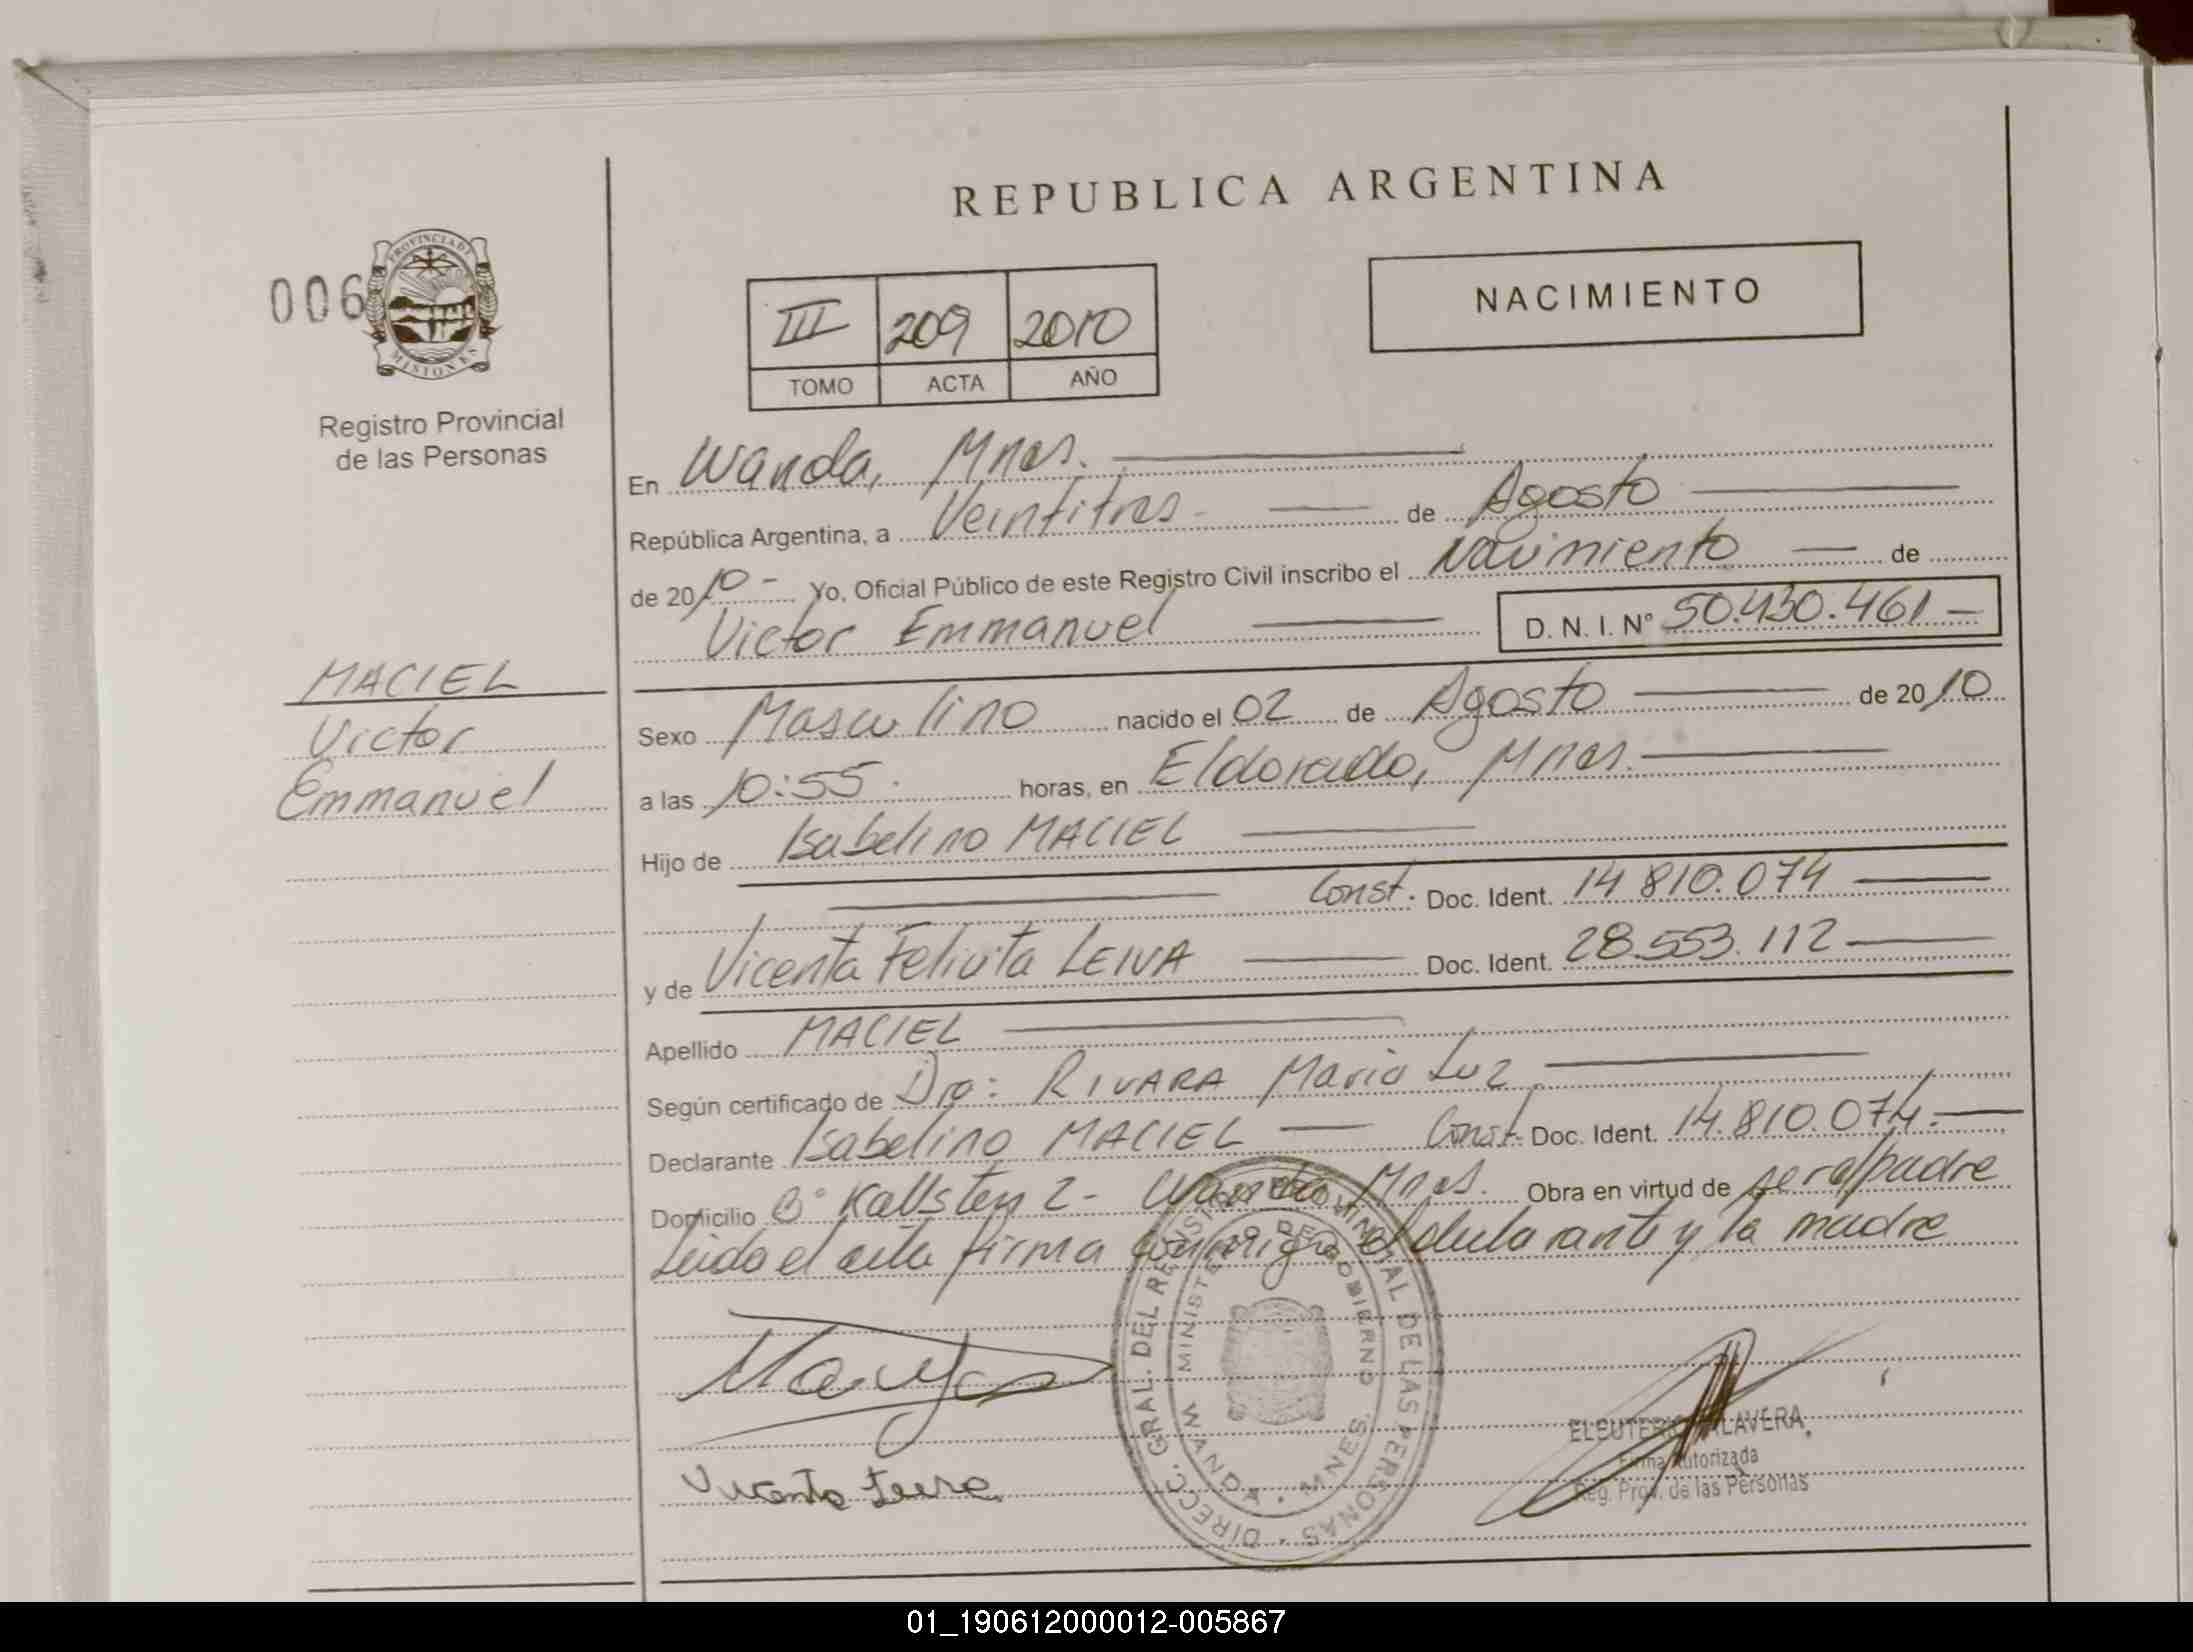 REPUBLICA ARGENTINA
006
PROVINCIA DE
MISIONES
Registro Provincial
de las Personas
III 209 2010
TOMO ACTA AÑO
NACIMIENTO
En Wanda, Mnes.
República Argentina, a Veintitres - de Agosto
de 2010 - Yo, Oficial Público de este Registro Civil inscribo el Nacimiento de
Victor Emmanuel D. N. I. N° 50.430.461
MACIEL
Victor
Emmanuel
Sexo Masculino nacido el 02 de Agosto de 2010
a las 10:55. horas, en Eldorado, Mnes.
Hijo de Isabelino MACIEL
Const. Doc. Ident. 14 810.074
y de Vicenta Felicita LEIVA Doc. Ident. 28.553.112
Apellido MACIEL
Según certificado de Dra: RIVARA Maria Luz
Declarante Isabelino MACIEL Const. Doc. Ident. 14.810.074.
Domicilio B° Kallsten 2 - Wanda Mnes. Obra en virtud de ser el padre
Leida el acta firma conmigo el declarante y la madre
DIRECC. GRAL. DEL REGISTRO PROVINCIAL DE LAS PERSONAS
MINISTERIO DE GOBIERNO
WANDA - MNES.
ELEUTERIO TALAVERA
Firma Autorizada
Reg. Prov. de las Personas
01_190612000012-005867